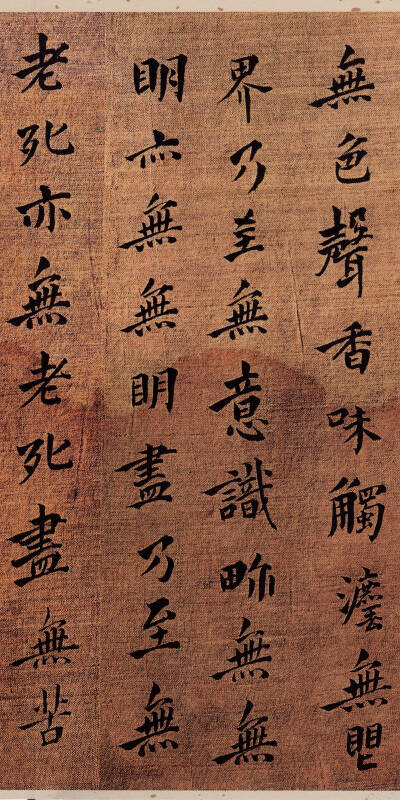 無色聲香味觸灋無眼
界乃至無意識畍無無
眀亦無無眀盡乃至無
老死亦無老死盡無苦